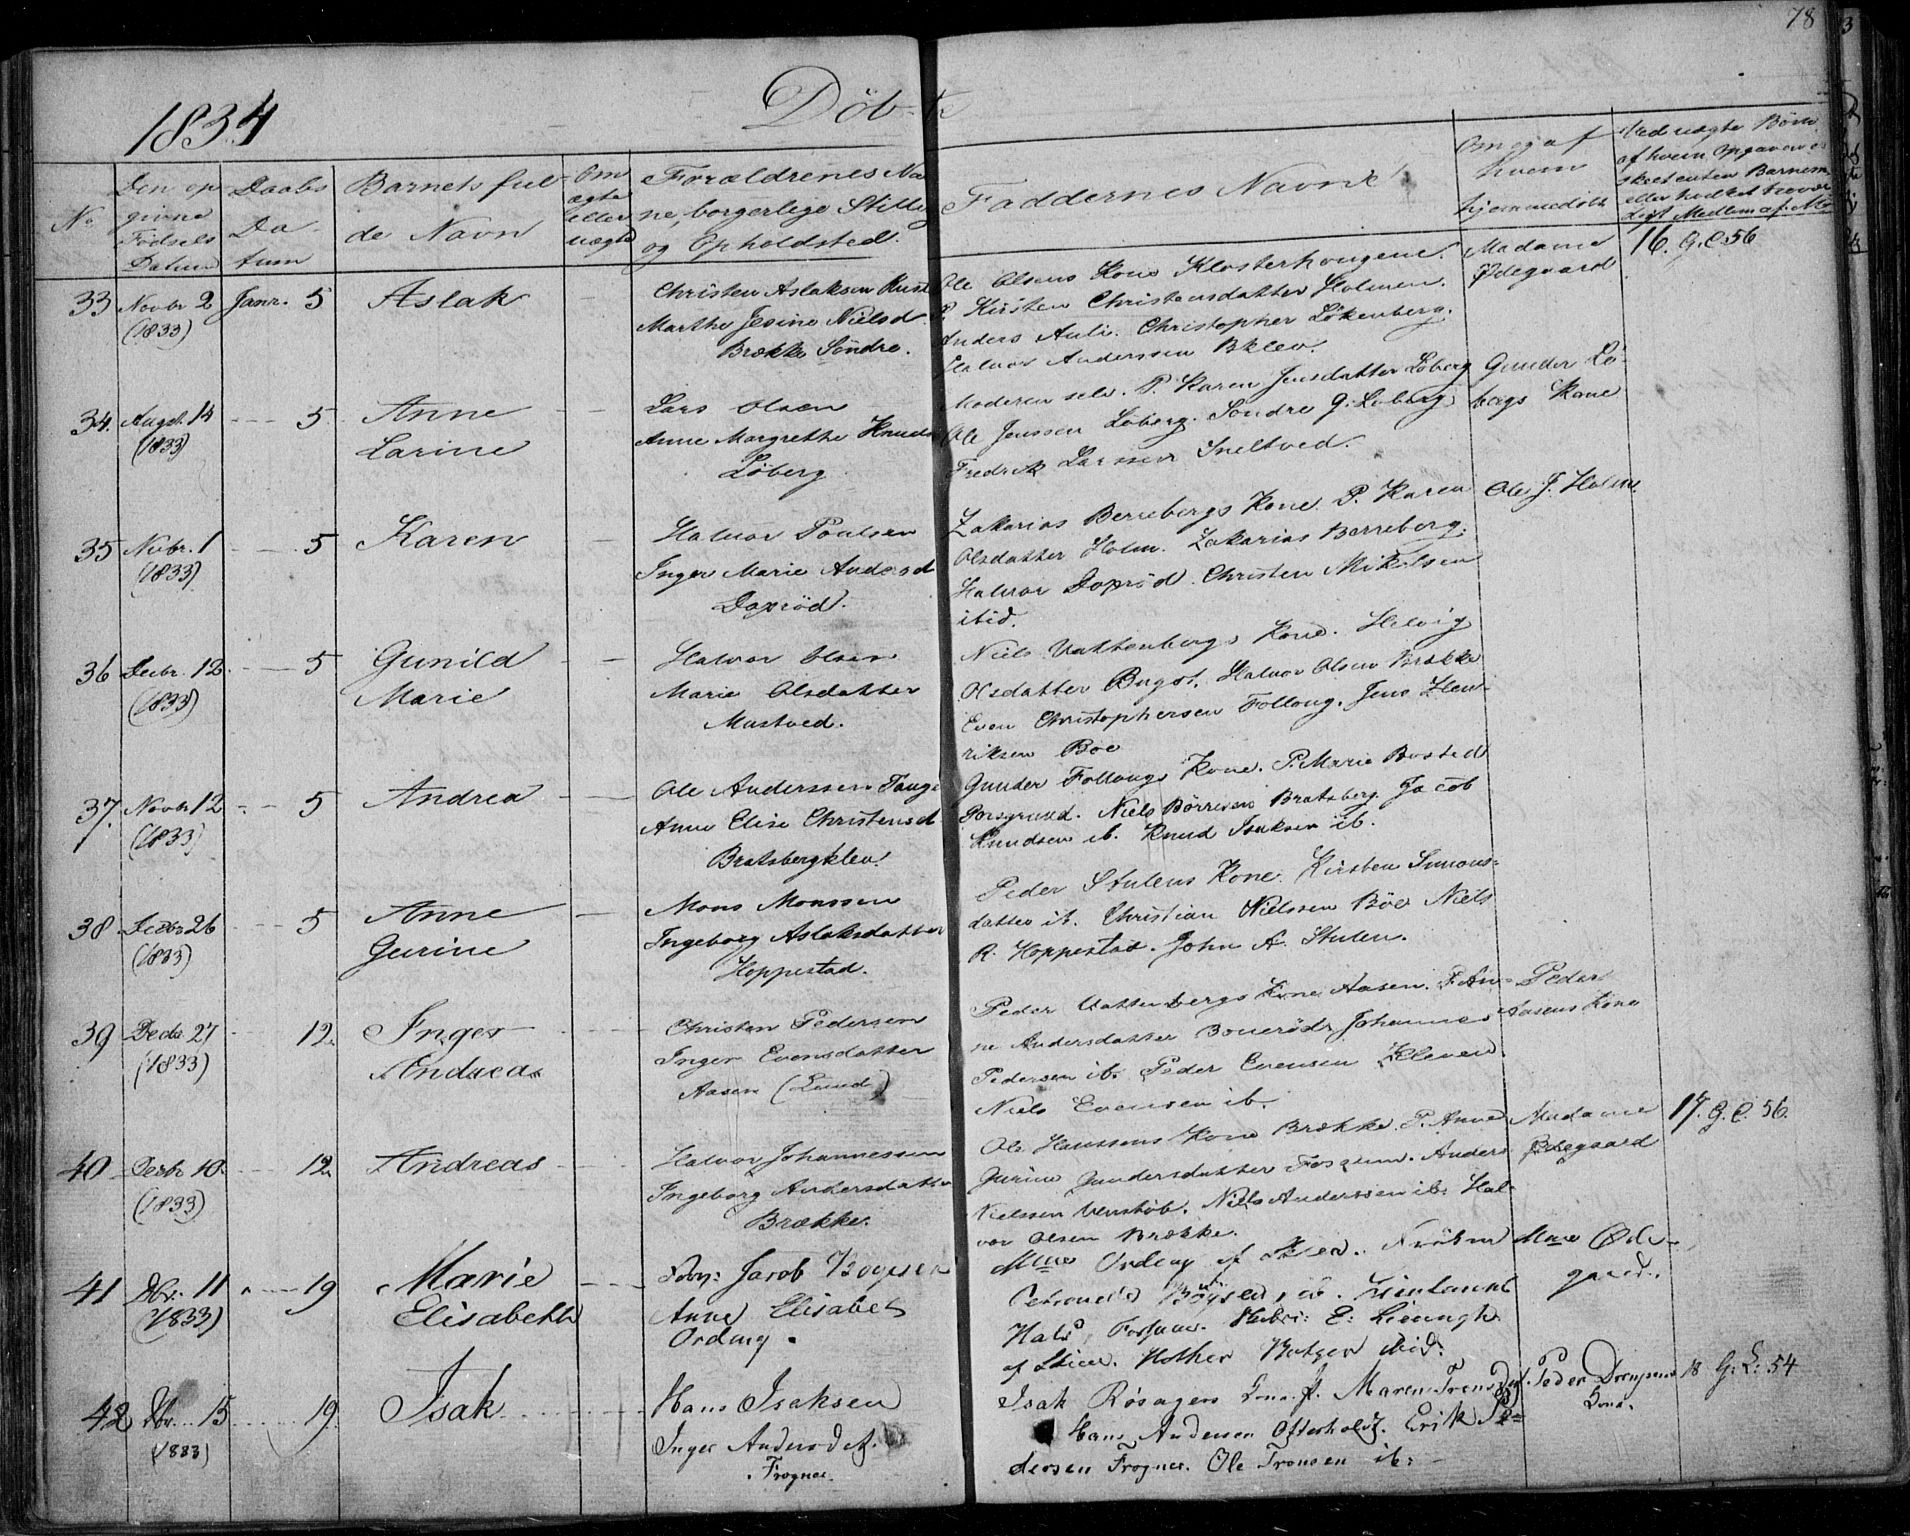 78
1834 Döb-te
No
Den op
givne
Födsels
Datum
Daabs
Da-
tum
Barnets ful-
de Navn
Om
ægte
eller
uægte
Forældrenes Na
ne, borgerlige Stilling
og Opholdsted.
Faddernes Navne
Om og af
hvem
hjemmedöbt
Ved uægte Børn
af hvem Opgaven er
skeet enten Barnem.
eller hvilket trovær
digt Medlem af
33 Novbr 2 Janr. 5 Aslak
(1833)
Christen Aslaksen
Marthe Jesine Nielsd
Brække Söndre.
Ole Olsens Kone Klosterhougene.
P. Kirsten Christensdatter Holmen.
Anders Auli. Christopher Lökenberg.
Halvor Anderssen Bklev.
Madame
Ødegaard
16. G.C. 56
34. Augst. 14 - - 5 Anne
(1833) Larine
Lars Olsen
Anne Margrethe Knuds
Løberg
Moderen selv. P. Karen Jensdatter Løberg
Ole Jenssen Løberg. Søndre G. Løberg.
Fredrik Larssen Sneltved.
Gunder Lö-
bergs Kone
35 Novbr. 1 - - 5 Karen
(1833)
Halvor Poulsen
Inger Marie Andersd
Doxröd.
Zakarias Berrebergs Kone P. Karen
Olsdatter Holm. Zakarias Berreberg.
Halvor Doxröd. Christen Mikelsen
ibid.
Ole J. Holm.
36 Decbr. 12. - - 5 Gunild
(1833) Marie
Halvor Olsen
Marie Olsdatter
Mustved.
Niels Vattenbergs Kone. Helvig
Olsdatter Bugst. Halvor Olsen Brække
Even Christophersen Follaug. Jens Hen-
riksen Böe
37. Novbr 12 - - 5 Andrea
(1833)
Ole Anderssen Tangen
Anne Elise Christensd
Bratsbergklev.
Gunder Follaugs Kone. P. Marie Bosted
Porsgrund. Niels Börresen Bratsberg. Jacob
Knudsen ib. Knud Isaksen ib.
38 Decbr 26 - 5 Anne
(1833) Gurine
Mons Monssen
Ingeborg Aslaksdatter
Hoppestad.
Peder Stulens Kone. Kirsten Simons-
datter ib. Christian Nielssen Böe Niels
R. Hoppestad. John A. Stulen.
39 Decbr 27 - 12. Inger
(1833) Andrea
Christen Pedersen
Inger Evensdatter
Aasen (Lund)
Peder Vattenbergs Kone Aasen. P. An-
ne Andersdatter Bonerödr. Johannes
Pedersen ib. Peder Evensen Kleven.
Niels Evensen ib.
Peder
Aasens Kone
40 Decbr 10. - 12 Andreas
(1833)
Halvor Johannessen
Ingeborg Andersdatter
Brække.
Ole Hanssens Kone Brække. P. Anne
Gurine Gundersdatter Fossum. Anders
Nielssen Venstöb. Niels Anderssen ib. Hal-
vor Olsen Brække.
Madame
Ødegaard
17. G.C. 56.
41 Dbr. 11 - 19 Marie
(1833) Elisabeth
Jacob Boysen
Anne Elisabet
Ording.
Mme Ording af Skien. Fröken
Petronelle Böysen, ib. Lieutenant
Hals, Fossum. E:
af Skien. Hother Bötger ibid.
Mme Øde-
gaard.
42 Dbr. 15 - 19. Isak
(1833)
Hans Isaksen
Inger Andersd.
Frogner.
Isak Røsagers Kone. P. Maren Tronsd.
Hans Andersen Ofterholdt. Erik Pe-
dersen Frogner. Ole Tronsen ib:
Peder
Kone.
18 G: L: 54